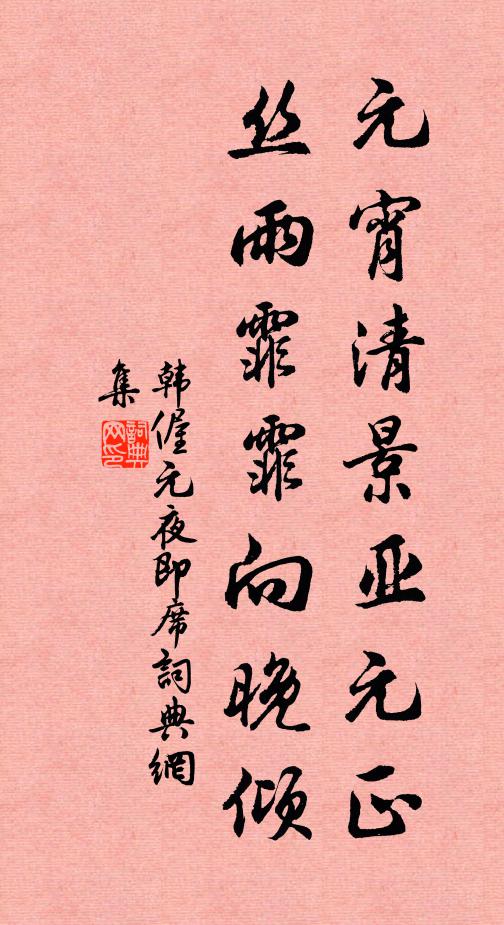 元宵清景亚元正
丝雨霏霏向晚倾
韩偓元夜即席詞典網
集
詞典
网印